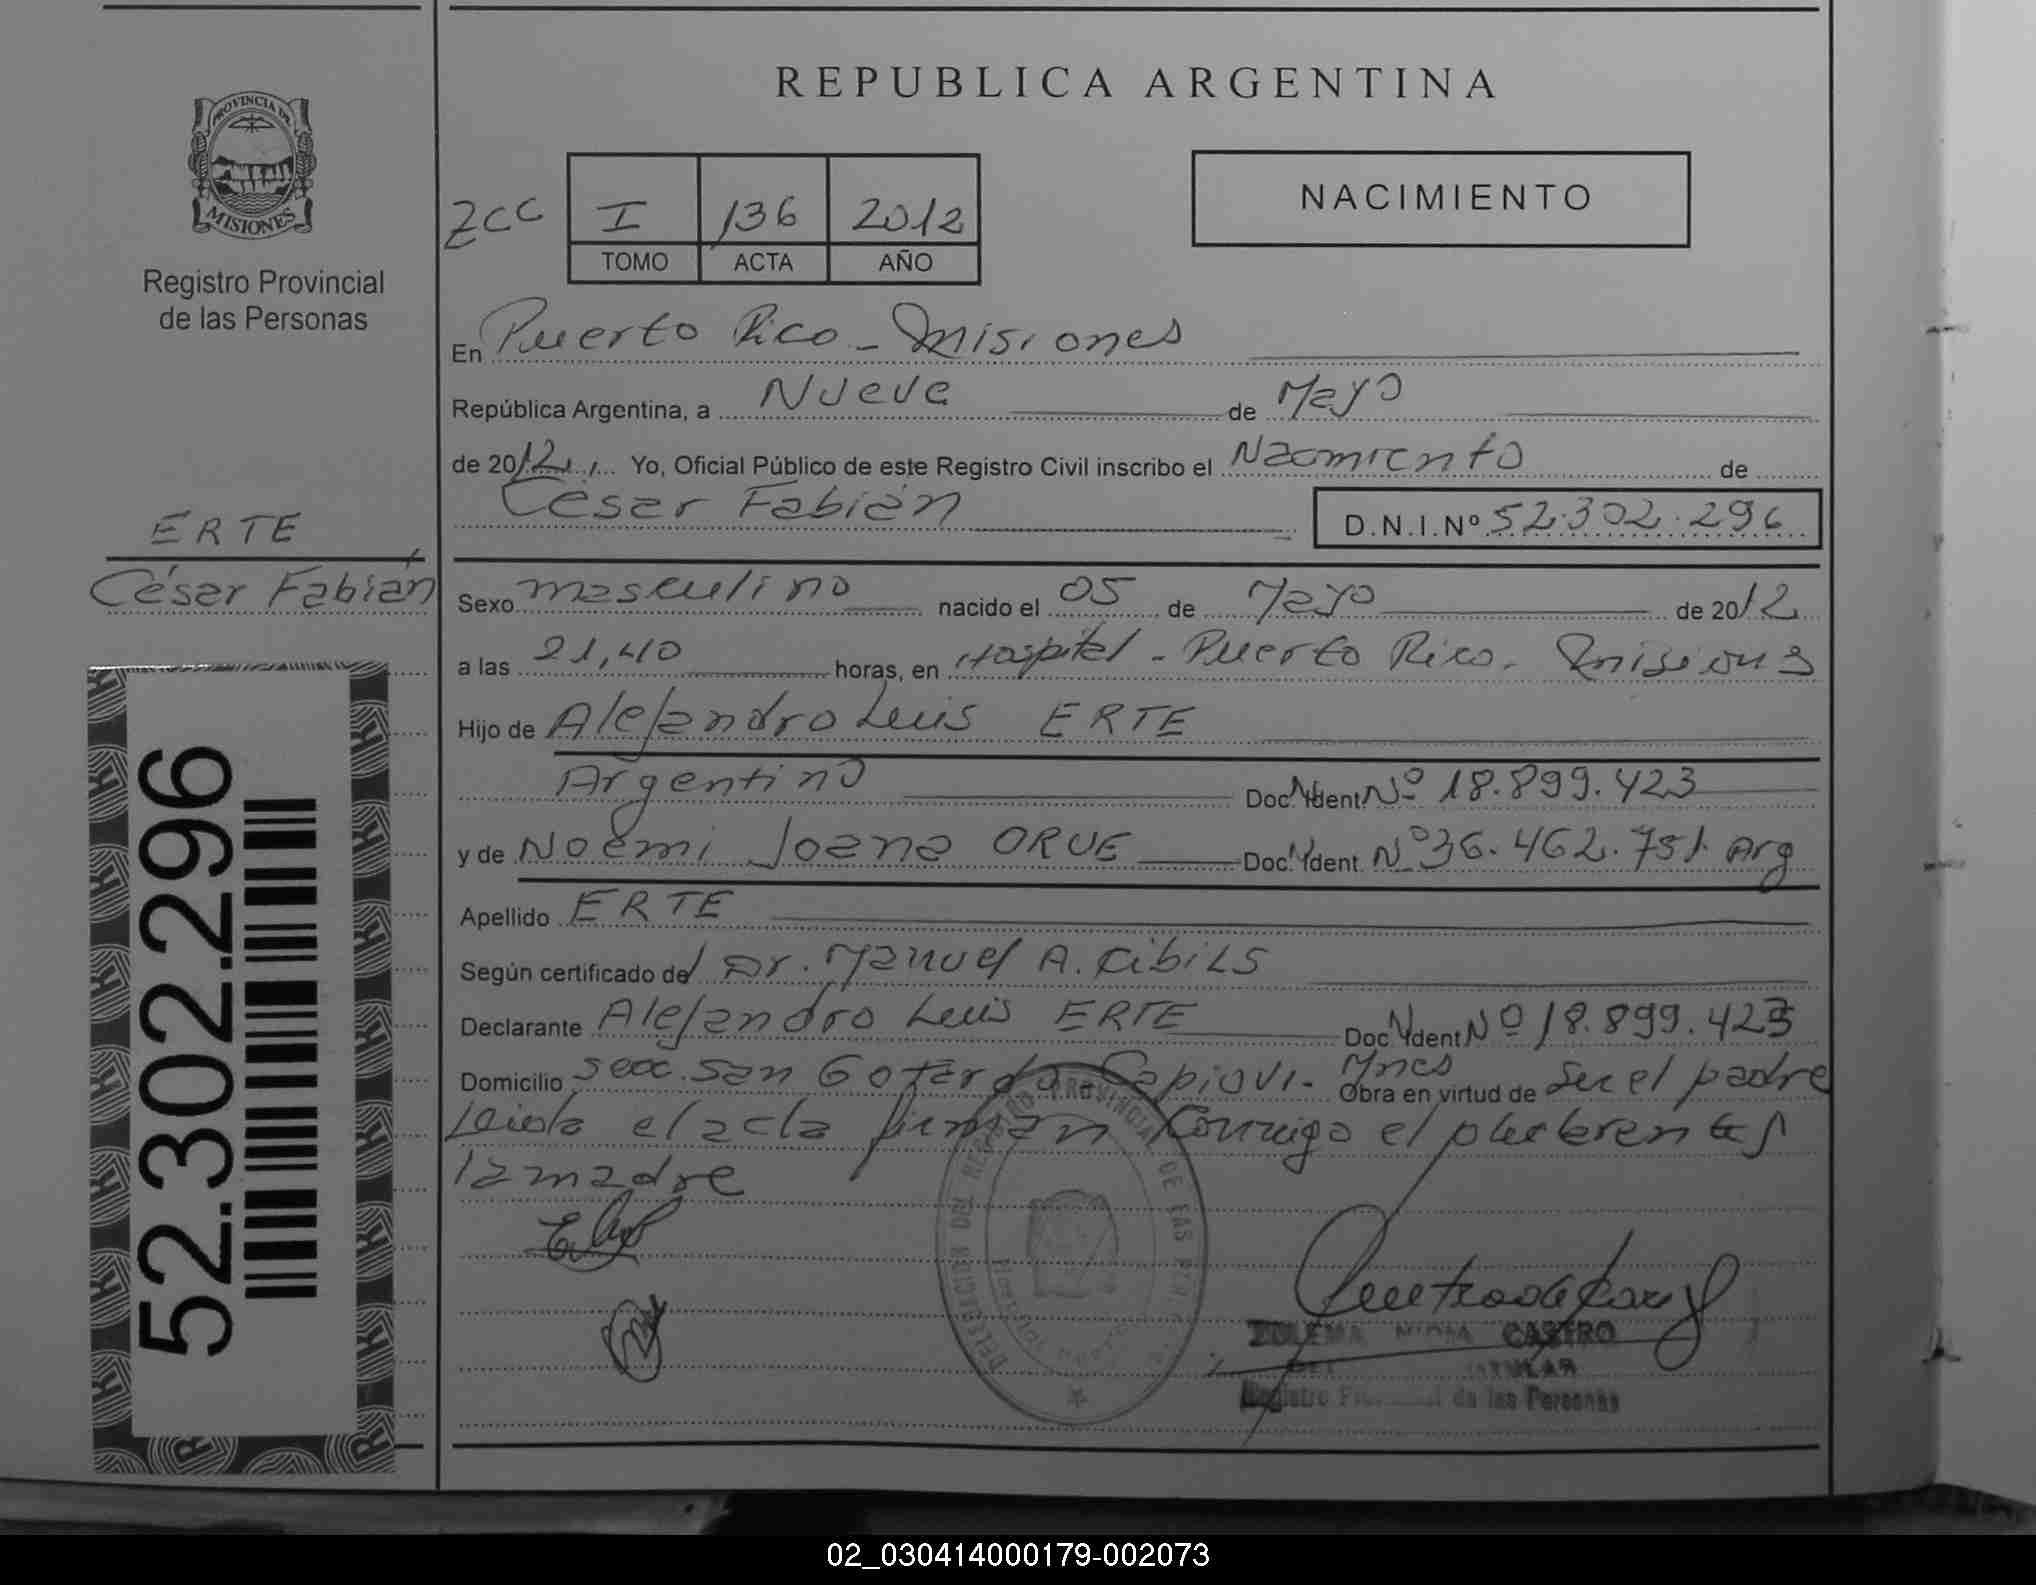 REPUBLICA ARGENTINA
PROVINCIA DE
MISIONES
Registro Provincial
de las Personas
ZCC
I 136 2012
TOMO ACTA AÑO
NACIMIENTO
En Puerto Rico - Misiones
República Argentina, a Nueve de Mayo
de 2012 Yo, Oficial Público de este Registro Civil inscribo el Nacimiento de
César Fabián D.N.I.Nº 52.302.296
ERTE
César Fabián
Sexo masculino nacido el 05 de Mayo de 2012
a las 21,40 horas, en Hospital - Puerto Rico. Misiones
Hijo de Alejandro Luis ERTE
Argentino Doc. Ident Nº 18.899.423
y de Noemi Joana ORUE Doc. Ident. Nº 36.462.751. Arg
Apellido ERTE
Según certificado del Dr. Manuel A. Cibils
Declarante Alejandro Luis ERTE Doc. Ident Nº 18.899.423
Domicilio secc. San Gotardo - Capiovi. Mnes Obra en virtud de ser el padre
Leida el acta firman conmigo el declarante y
la madre
52.302.296
DELEGACION DEL REGISTRO PROVINCIAL DE LAS
ZULEMA NIDIA CASTRO
TITULAR
Registro Provincial de las Personas
02_030414000179-002073